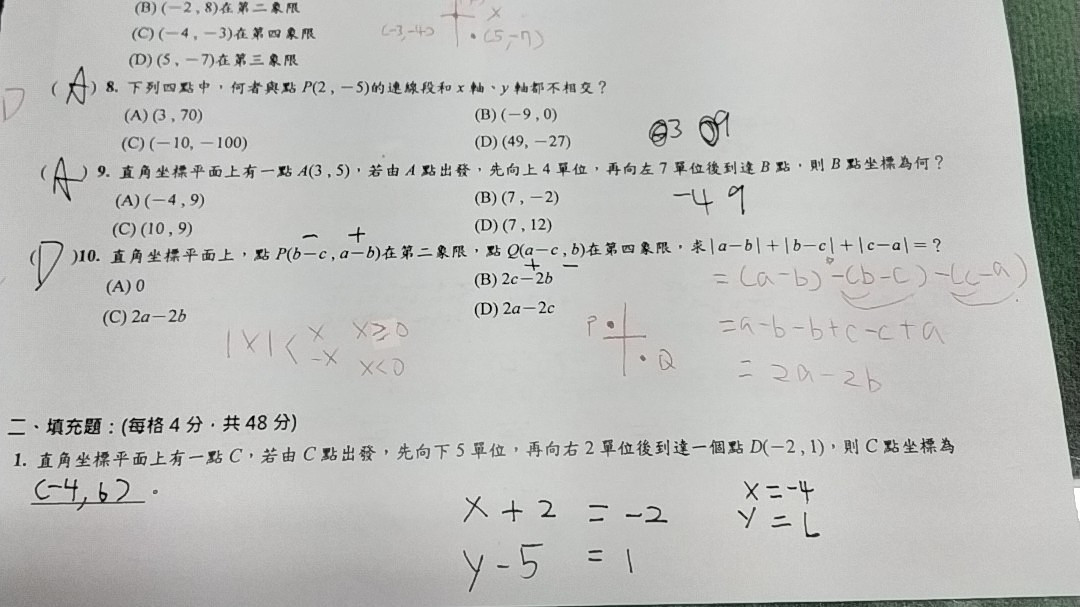 (B) (－2 , 8)在第二象限
(C) (－4 , －3)在第四象限
(D) (5 , －7)在第三象限
x
(-3,-4)
(5,-7)
D
( A ) 8. 下列四點中，何者與點 P(2 , －5)的連線段和 x 軸、y 軸都不相交？
(A) (3 , 70) (B) (－9 , 0)
(C) (－10, －100) (D) (49, －27)
3 9
( A ) 9. 直角坐標平面上有一點 A(3 , 5)，若由 A 點出發，先向上 4 單位，再向左 7 單位後到達 B 點，則 B 點坐標為何？
(A) (－4 , 9) (B) (7 , －2)
-4 9
(C) (10 , 9) (D) (7 , 12)
- +
( D )10. 直角坐標平面上，點 P(b－c , a－b)在第二象限，點 Q(a－c , b)在第四象限，求|a－b|＋|b－c|＋|c－a|＝？
+ -
(A) 0 (B) 2c－2b
=(a-b)-(b-c)-(c-a)
(C) 2a－2b (D) 2a－2c
|x|< x x≥0
-x x<0
P
Q
=a-b-b+c-c+a
= 2a-2b
二、填充題：(每格 4 分，共 48 分)
1. 直角坐標平面上有一點 C，若由 C 點出發，先向下 5 單位，再向右 2 單位後到達一個點 D(－2 , 1)，則 C 點坐標為
(-4,6)。
x+2 = -2
y-5 = 1
x=-4
y=6